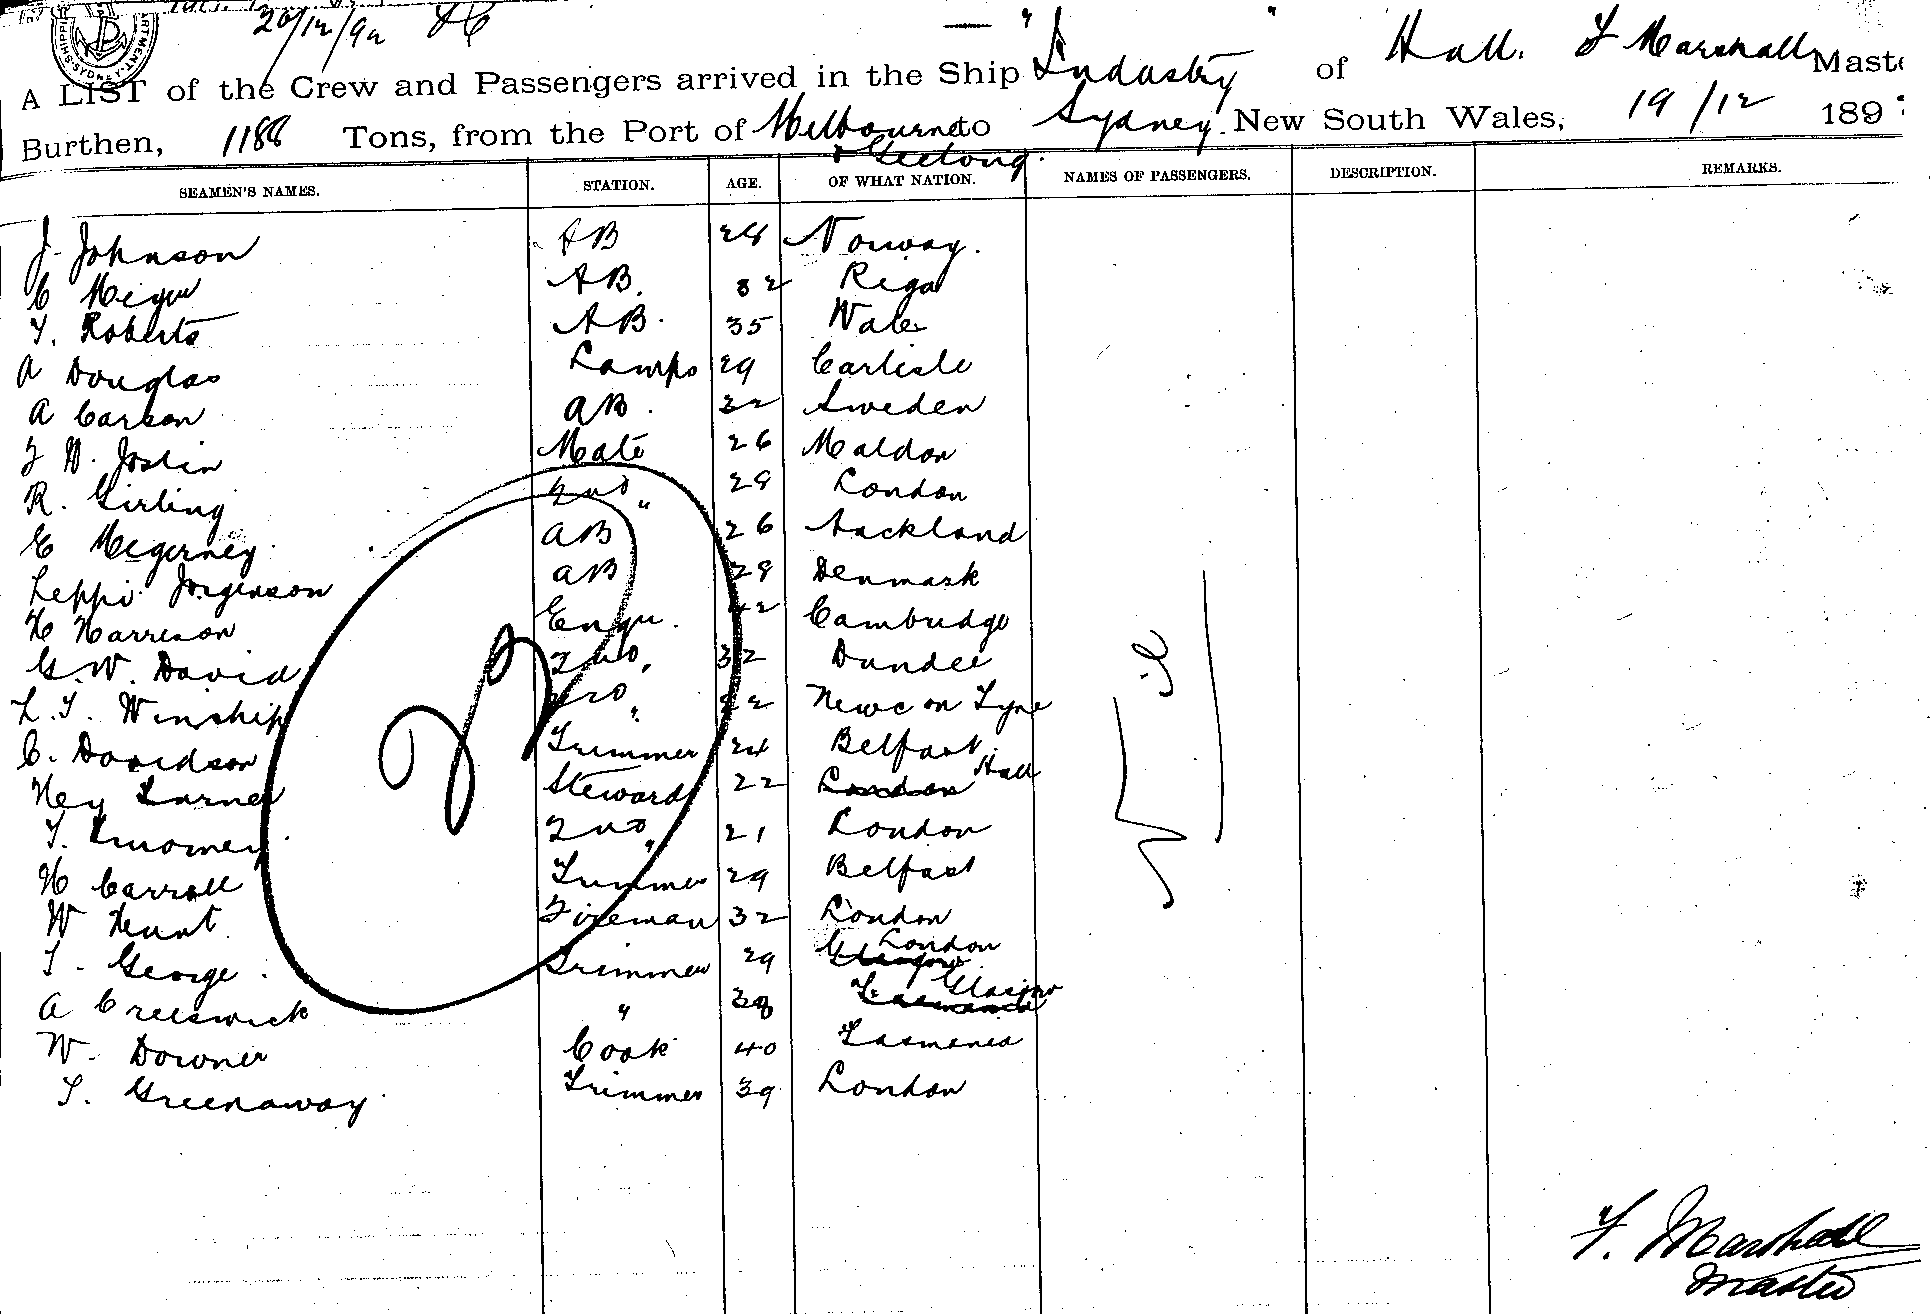 20/12/92
"Industry" of Hull. F Marshall Maste
A LIST of the Crew and Passengers arrived in the Ship
Burthen, 1188 Tons, from the Port of Melbourne to Sydney. New South Wales, 19/12 189
& Geelong.
SEAMEN'S NAMES. STATION. AGE. OF WHAT NATION. NAMES OF PASSENGERS. DESCRIPTION. REMARKS.
J. Johnson AB 28 Norway.
C AB. 32 Riga
T. Roberts AB. 35 Wales
A Douglas Lamps 29 Carlisle
A Carson AB. 22 Sweden
F W. Joslin Mate 26 Maldon
R. Girling 2nd " 28 London
E Megerney AB 26 Auckland
Leppi Jorgenson AB 28 Denmark
H Harrison Engr. 42 Cambridge
G. W. David 2nd, 32 Dundee
L. T. Winship 3rd " 22 Newc on Tyne
C. Davidson Trimmer 24 Belfast.
Hy Turner Steward 22 London Hull
T. 2nd " 21 London
H Carroll Trimmer 29 Belfast
W Hunt Fireman 32 London
T. George Trimmer 29 Glasgow London
A Creeswick " 38 Tasmania Glasgow
W. Downer Cook 40 Tasmania
T. Greenaway Trimmer 39 London
Nil
F. Marshall
Master